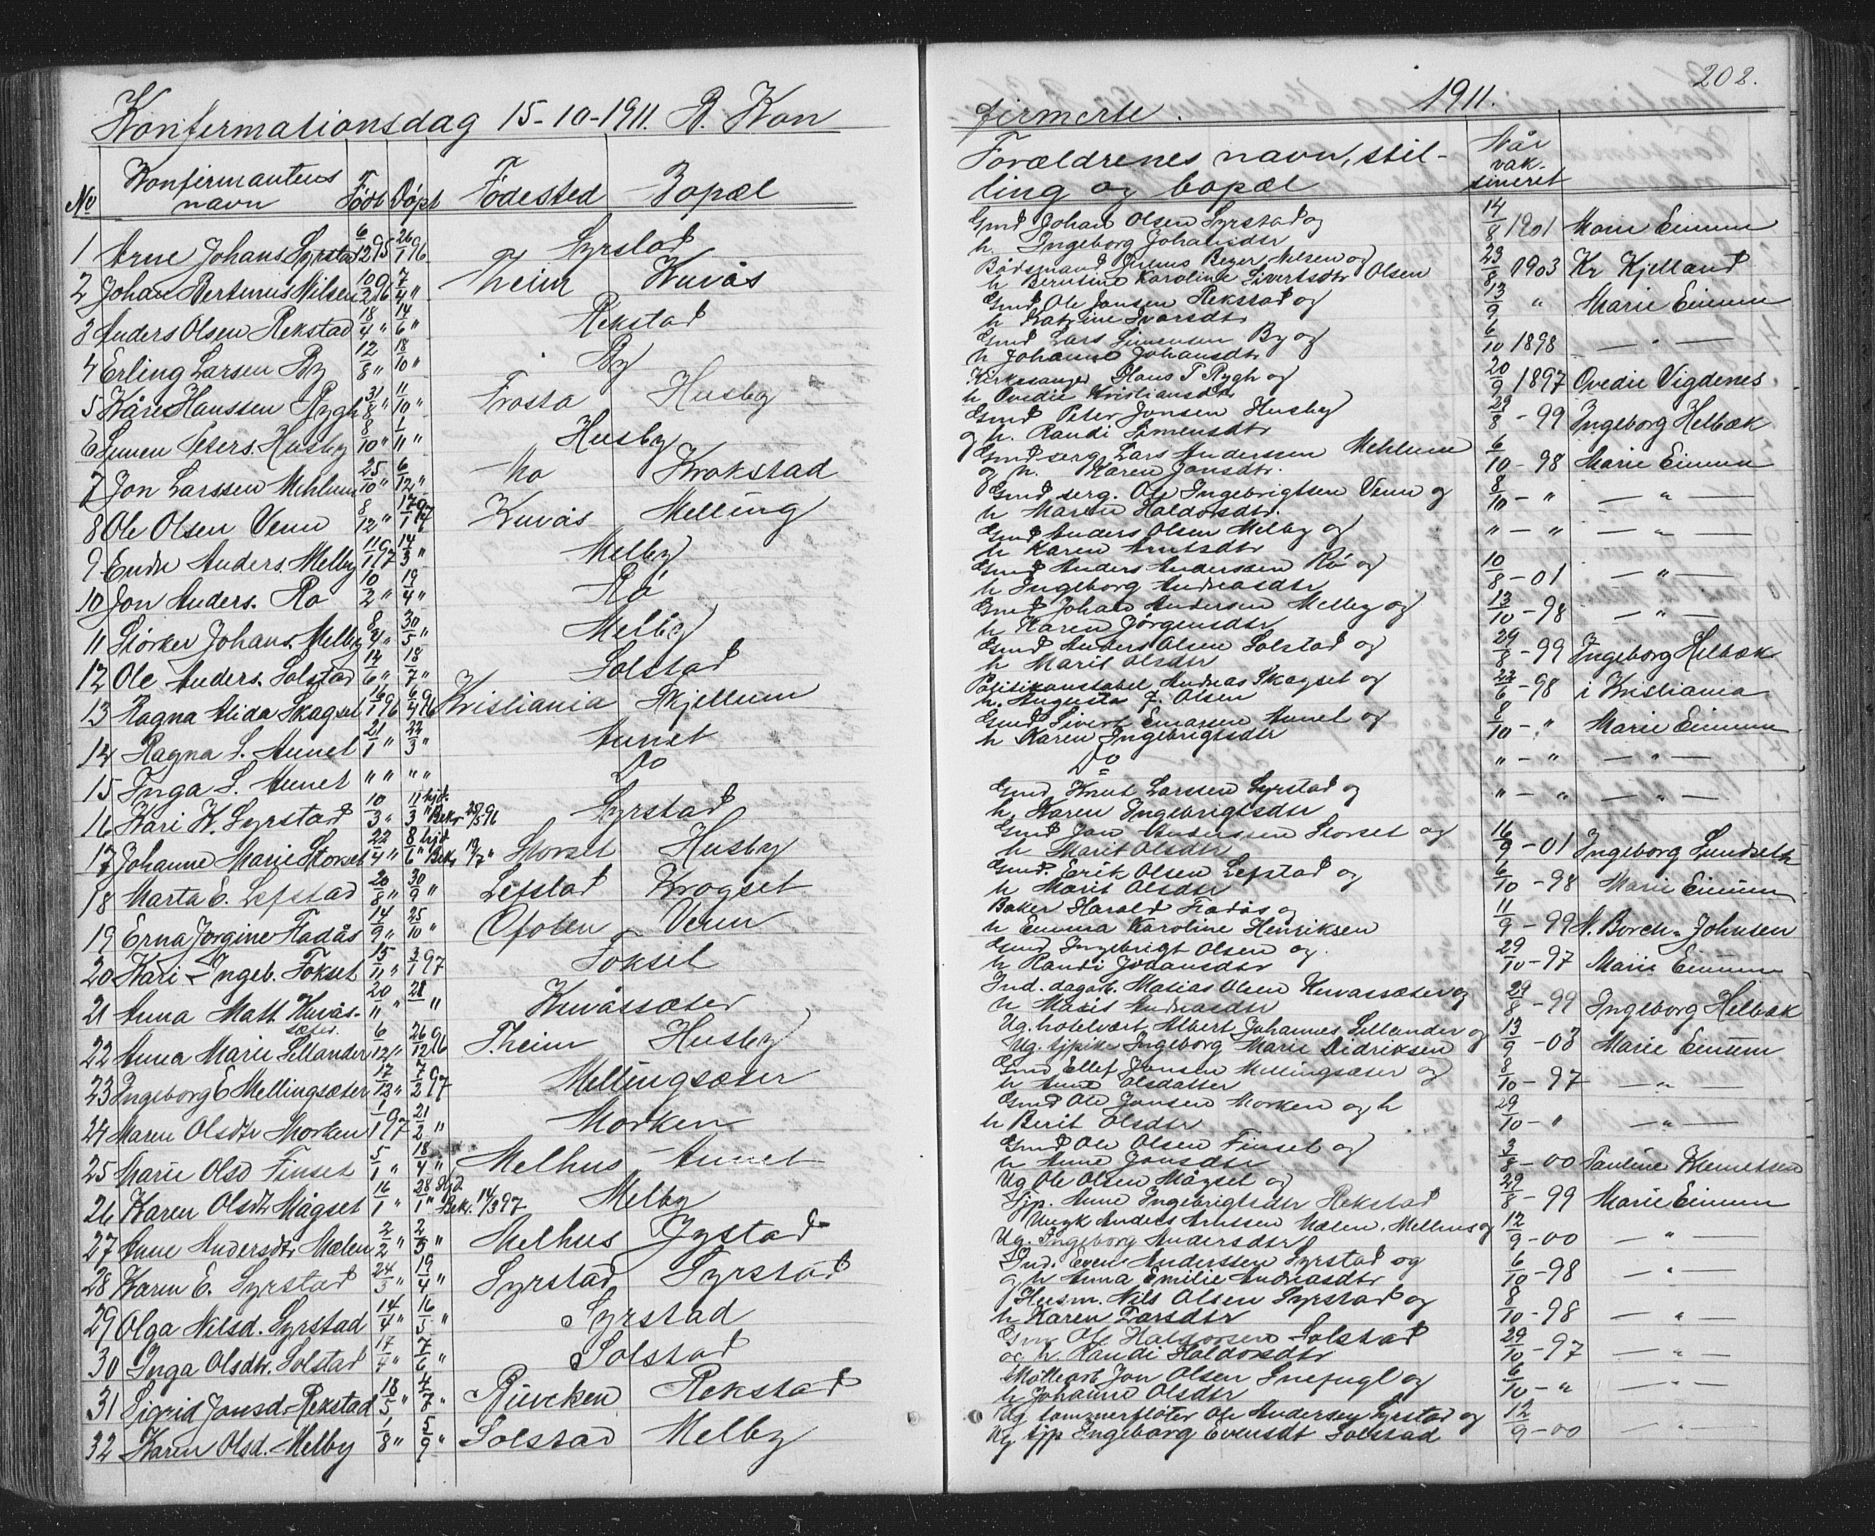 Konfirmationsdag 15-10-1911. B. Kon
No Konfirmantens navn Født Døpt Fødested Bopæl
1 Arne Johans. Syrstad 6/12 95 26/1 96 Syrstad
2 Johan Bertinus Nilsen 10/2 96 7/4 " Theim Kuvås
3 Anders Olsen Rekstad 18/4 " 14/6 " Rekstad
4 Erling Larsen By 12/8 " 18/10 " By
5 Kåre Hanssen Rygh 31/8 " 11/10 " Frosta Husby
6 Simen Peters. Husby 8/10 " 1/11 " Husby
7 Jon Larssen Mehlum 25/10 " 6/12 " Mo Krokstad
8 Ole Olsen Venn 8/12 " 17/1 97 Kuvås Melling
9 Endre Anders. Melby 11/1 97 14/3 " Melby
10 Jon Anders. Rø 10/2 " 19/4 " Rø
11 Størker Johans. Melby 8/4 " 30/5 " Melby
12 Ole Anders. Solstad 14/6 " 18/7 " Solstad
13 Ragna Alida Skagset 16/1 96 6/4 96 Kristiania Skjellum
14 Ragna S. Aunet 21/1 " 22/3 " Aunet
15 Inga S. Aunet " " " " Do
16 Kari K. Syrstad 10/3 " 11/3 hjd. " Bekr. 28/5 96 Syrstad
17 Johanne Marie Storset 22/4 " 8/6 hjd. " Bekr. 19/7 " Storset Husby
18 Marta E. Lefstad 20/8 " 30/9 " Lefstad Krogset
19 Erna Jørgine Fladås 14/9 " 25/10 " Ofoten Venn
20 Kari Ingeb. Fokset 15/11 " 3/1 97 Fokset
21 Anna Matt. Kuvås-sæter 20/" " 28/" " Kuvåssæter
22 Anna Marie Sellander 6/12 " 26/12 96 Theim Husby
23 Ingeborg E Mellingsæter 17/12 " 7/2 97 Mellingsæter
24 Maren Olsdtr Morken 1/1 97 21/2 " Morken
25 Marie Olsd Finset 5/1 " 18/4 " Melhus Aunet
26 Karen Olsdtr Mågset 16/1 " 28/1 hjd. " Bekr. 14/3 97 Melby
27 Anne Andersdtr. Mælen 2/2 " 2/3 " Melhus Jystad
28 Karen E. Syrstad 24/3 " 19/4 " Syrstad Syrstad
29 Olga Nilsd. Syrstad 14/4 " 16/5 " Syrstad
30 Inga Olsdtr. Solstad 17/4 " 7/6 " Solstad
31 Sigrid Jonsd. Rekstad 18/5 " 4/7 " Rekstad
32 Karen Olsd. Melby 1/8 " 5/9 " Solstad Melby
firmerte. 1911. 202.
Forældrenes navn, stilling og bopæl Når vaksineret
Gmd Johan Olsen Syrstad og 14/8 1901 Marie Eimum
h. Ingeborg Johansdtr
Bådsmand Julius Beyer Nilsen og 23/8 1903 Kr Kjelland
h Berntine Karoline Sivertsdtr Olsen
Gmd Ole Jonsen Rekstad og 13/9 " Marie Eimum
h Katrine Ivarsdtr
Gmd Lars Simensen By og 6/10 1898 — " —
h Johanne Johansdtr
Kirkesanger Hans T Rygh og 20/9 1897 Ovedie Vigdenes
h Ovedie Kristiansdtr
Gmd Peter Jonsen Husby 29/8 - 99 Ingeborg Helbæk
og h. Randi Simensdtr
Gmd. serg Lars Anderssen Mehlum 6/10 - 98 Marie Eimum
og h. Karen Jonsdtr.
Gmd. serg. Ole Ingebrigtsen Venn og 8/10 - " — " —
h Marit Haldorsdtr.
Gmd Anders Olsen Melby og " - " — " —
h Karen Arntsdtr
Gmd Anders Anderssen Rø og 10/8 - 01 — " —
h Ingeborg Andreasdtr
Gmd Johan Andersen Melby og 13/10 - 98 — " —
h Karen Jørgensdtr
Gmd Anders Olsen Solstad og 29/8 - 99 Ingeborg Helbæk
h Marit Olsdtr
Politikonstabel Andreas Skagset og 22/6 - 98 i Kristiania
h. Augusta J. Olsen
Gmd Sivert Einarsen Aunet og 8/10 - " Marie Eimum
h Karen Ingebrigtsdtr
Do " - " — " —
Gmd Knut Larssen Syrstad og " - " — " —
h. Karen Ingebrigtsdtr
Gmd Jon Anderssen Storset og 16/9 - 01 Ingeborg Lundseth
h Marit Olsdtr
Gmd. Erik Olsen Lefstad og 6/10 - 98 Marie Eimum
h Marit Olsdtr
Baker Harald Fladås og 11/9 - 99 N. Borch-Johnsen
h Emma Karoline Henriksen
Gmd Ingebrigt Olsen og. 29/10 - 97 Marie Eimum
h Randi Johansdtr
Ind. dagarb. Matias Olsen Kuvassæter og 29/8 - 99 Ingeborg Helbæk
h Marit Andreasdtr
Ug. hotelvært Albert Johannes Sellander og 13/9 - 03 Marie Eimum
Ug. tjpike Ingeborg Marie Didriksen
Gmd Ellef Jonsen Mellingsæter og 8/10 - 97 — " —
h Anne Olsdatter
Gmd Ole Jonsen Morken og h 29/10 - " — " —
h Berit Olsdtr
Gmd Ole Olsen Finset og 3/8 - 00 Pauline Klemetsen
h Anne Jonsdtr
Ug Ole Olsen Mågset og 29/8 - 99 Marie Eimum
Tjp. Anne Ingebrigtsdtr Rekstad
Ungk Anders Arntsen Mælen, Melhus og 12/9 - 00 — " —
Ug. Ingeborg Andersdtr
Ind. Even Anderssen Syrstad og 6/10 - 98 — " —
og h Anna Emilie Andreasdtr
Husm. Nils Olsen Syrstad og 8/10 - 98 — " —
h Karen Larsdtr
Gm. Ole Haldorsen Solstad 29/10 - 97 — " —
og h. Randi Haldorsdtr
Jon Olsen Snefugl og 6/10 - " — " —
h Johanne Olsdtr
Ug tømmerfløter Ole Andersen Syrstad og 12/9 - 00 — " —
Ug tjp Ingeborg Evensdt Solstad